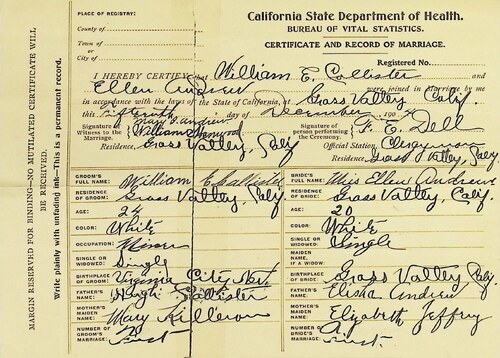 PLACE OF REGISTRY:
County of
Town of
or
City of
California State Department of Health.
BUREAU OF VITAL STATISTICS.
CERTIFICATE AND RECORD OF MARRIAGE.
Registered No.
I HEREBY CERTIFY that William E. Collister and
Ellen Andrew were joined in Marriage by me
in accordance with the laws of the State of California, at Grass Valley Calif.
this Fifteenth day of December 190
Signature of Witness to the Marriage: Mary J. Andrew
William
Residence, Grass Valley, Calif
Signature of person performing the Ceremony: F. E. Dell
Official Station, Clergyman
Residence, Grass Valley, Calif
GROOM'S FULL NAME: William E Collister
RESIDENCE OF GROOM: Grass Valley, Calif
AGE:
COLOR: White
OCCUPATION: Miner
SINGLE OR WIDOWED: Single
BIRTHPLACE OF GROOM: Virginia City Nev
FATHER'S NAME: Hugh Collister
MOTHER'S MAIDEN NAME: Mary
NUMBER OF GROOM'S MARRIAGE: First
BRIDE'S FULL NAME: Miss Ellen Andrew
RESIDENCE OF BRIDE: Grass Valley, Calif.
AGE: 20
COLOR: White
SINGLE OR WIDOWED: Single
MAIDEN NAME, IF A WIDOW:
BIRTHPLACE OF BRIDE: Grass Valley Calif.
FATHER'S NAME: Elisha Andrew
MOTHER'S MAIDEN NAME: Elizabeth Jeffrey
NUMBER OF BRIDE'S MARRIAGE: First
MARGIN RESERVED FOR BINDING—NO MUTILATED CERTIFICATE WILL
BE RECEIVED.
Write plainly with unfading ink—This is a permanent record.